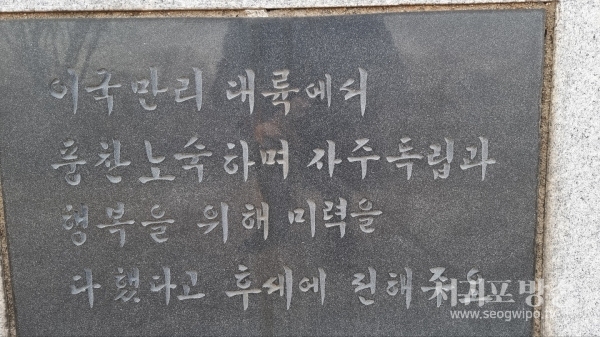 이국만리 대륙에서
풍찬노숙하며 자주독립과
행복을 위해 미력을
다했다고 후세에 전해주오
서귀포방송
www.seogwipo.